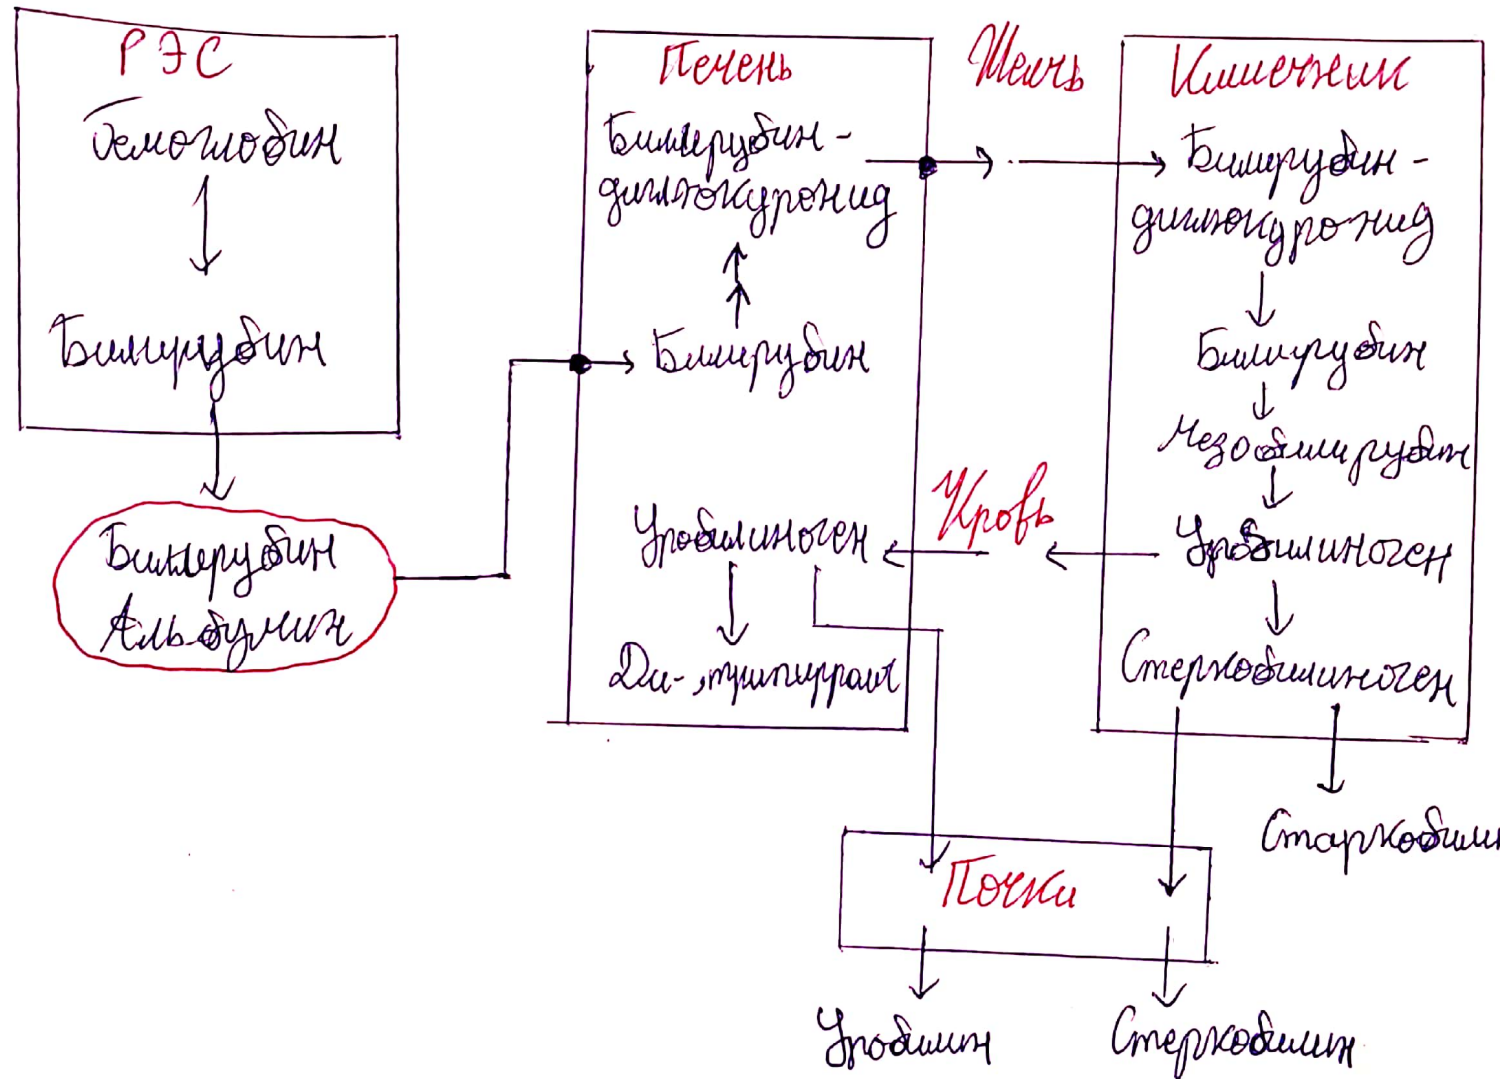 РЭС
Гемоглобин
Билирубин
Билирубин
Альбумин
Печень
Билирубин-
диглюкуронид
Билирубин
Уробилиноген
Ди-, трипиррол
Желчь
Кровь
Кишечник
Билирубин-
диглюкуронид
Билирубин
Мезобилирубин
Уробилиноген
Стеркобилиноген
Старкобилин
Почки
Уробилин
Стеркобилин